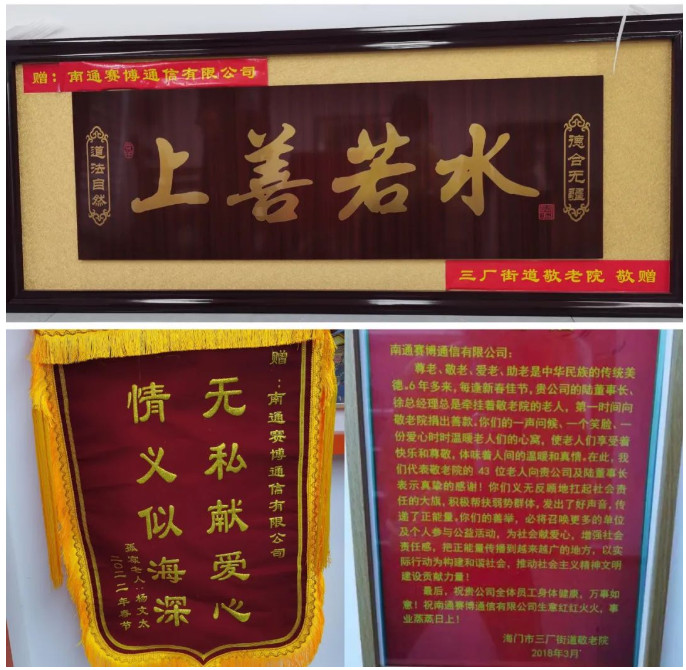 赠：南通赛博通信有限公司
道法自然
上善若水
德合无疆
三厂街道敬老院 敬赠
赠：南通赛博通信有限公司
无私献爱心
情义似海深
孤寡老人：杨文太
二〇一二年春节
南通赛博通信有限公司：
尊老、敬老、爱老、助老是中华民族的传统美
德。6年多来，每逢新春佳节，贵公司的陆董事长、
徐总经理总是牵挂着敬老院的老人，第一时间向
敬老院捐出善款。你们的一声问候、一个笑脸、一
份爱心时时温暖老人们的心窝，使老人们享受着
快乐和尊敬，体味着人间的温暖和真情。在此，我
们代表敬老院的 43 位老人向贵公司及陆董事长
表示真挚的感谢！你们义无反顾地扛起社会责
任的大旗，积极帮扶弱势群体，发出了好声音，传
递了正能量。你们的善举，必将召唤更多的单位
及个人参与公益活动，为社会献爱心，增强社会
责任感，把正能量传播到越来越广的地方，以实
际行动为构建和谐社会，推动社会主义精神文明
建设贡献力量！
最后，祝贵公司全体员工身体健康，万事如
意！祝南通赛博通信有限公司生意红红火火，事
业蒸蒸日上！
海门市三厂街道敬老院
2018年3月